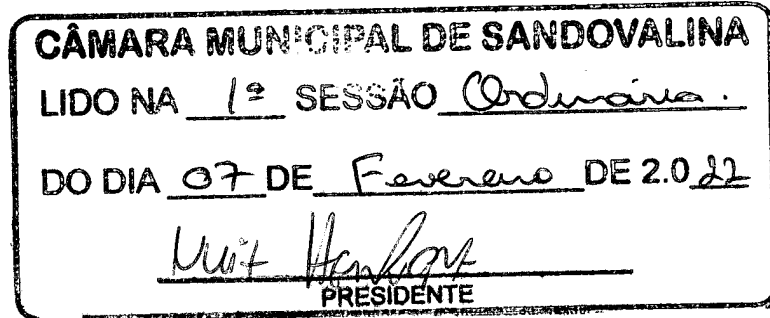 CÂMARA MUNICIPAL DE SANDOVALINA
LIDO NA 1ª SESSÃO Ordinária.
DO DIA 07 DE Fevereiro DE 2.022
PRESIDENTE